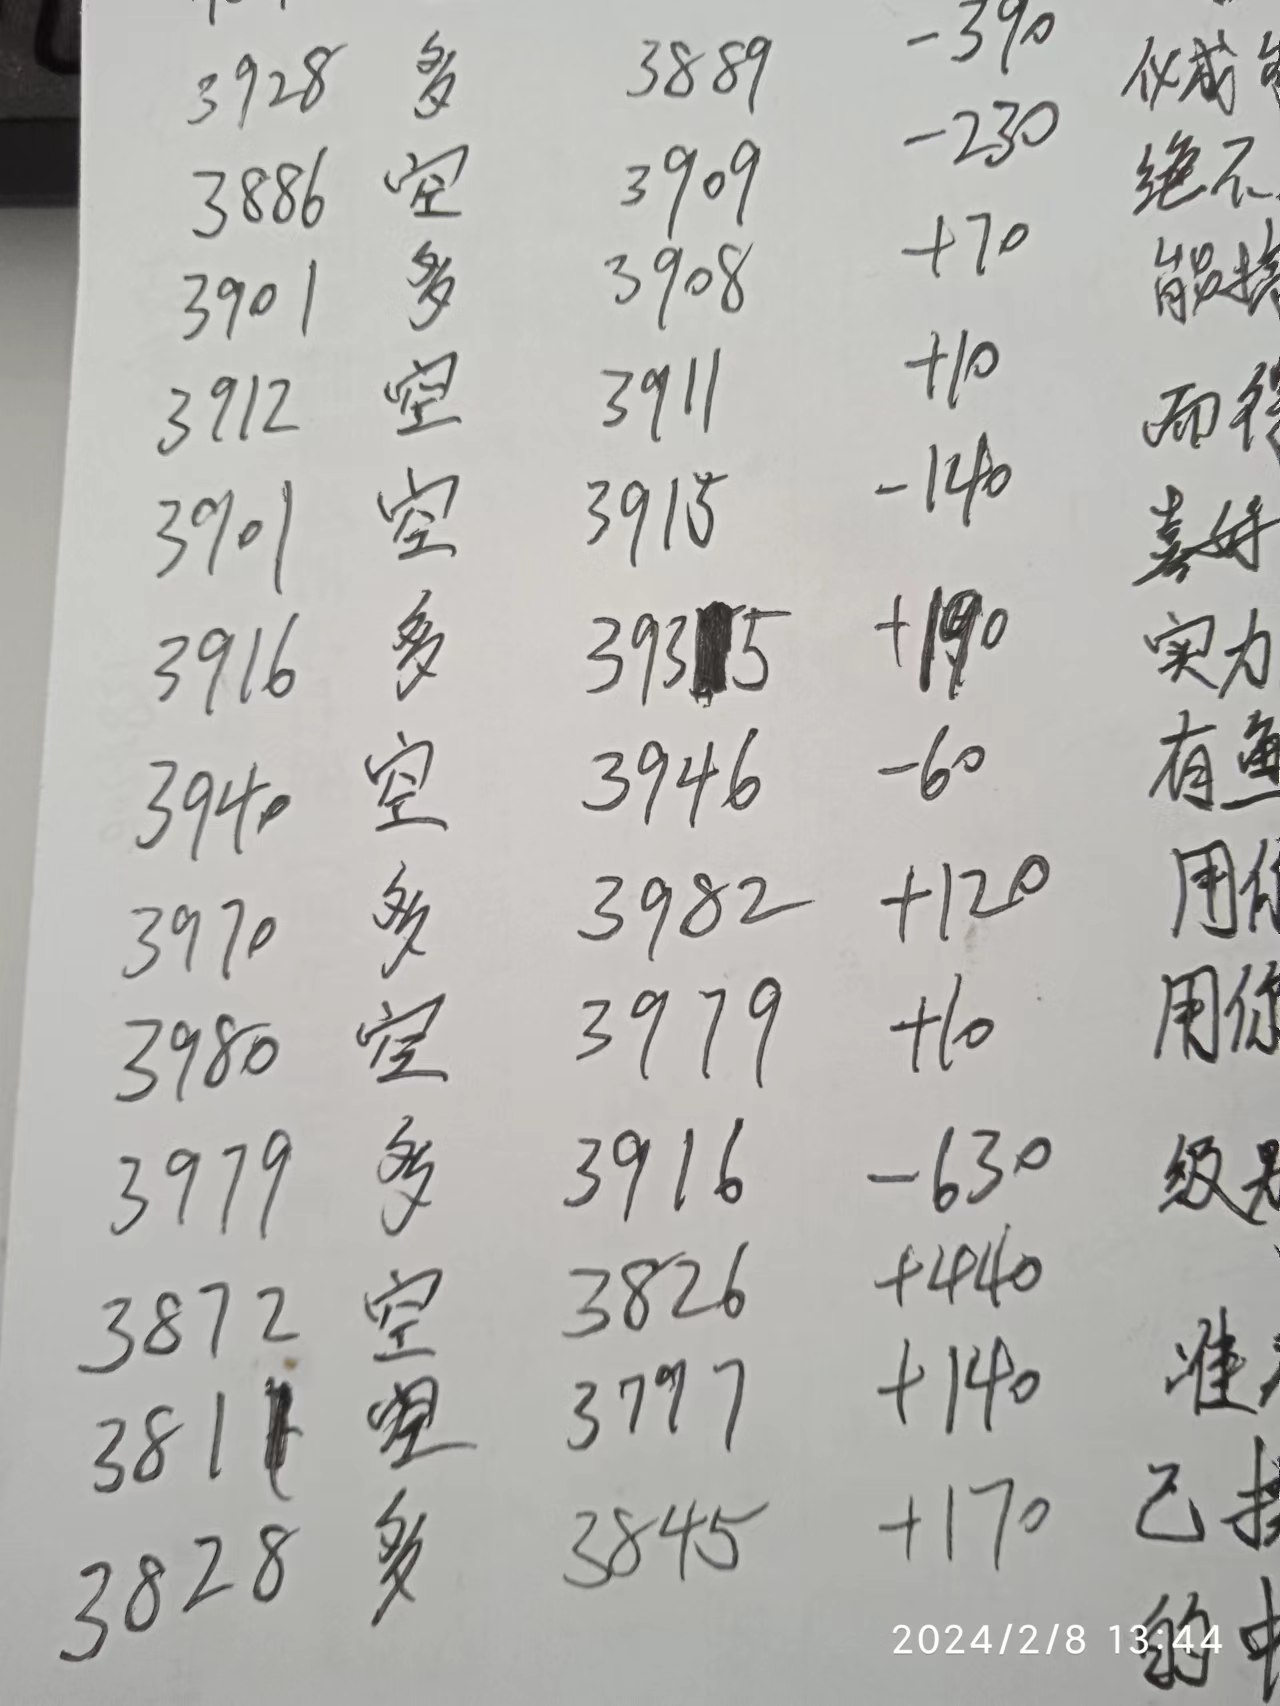 3928 多 3889 -390 仪或
3886 空 3909 -230 绝不
3901 多 3908 +70 能
3912 空 3911 +10 而
3901 空 3915 -140 喜好
3916 多 3935 +190 实力
3940 空 3946 -60 有鱼
3970 多 3982 +120 用你
3980 空 3979 +10 用你
3979 多 3916 -630 级是
3872 空 3826 +440
3811 空 3797 +140 准
3828 多 3845 +170 己
的中
2024/2/8 13:44